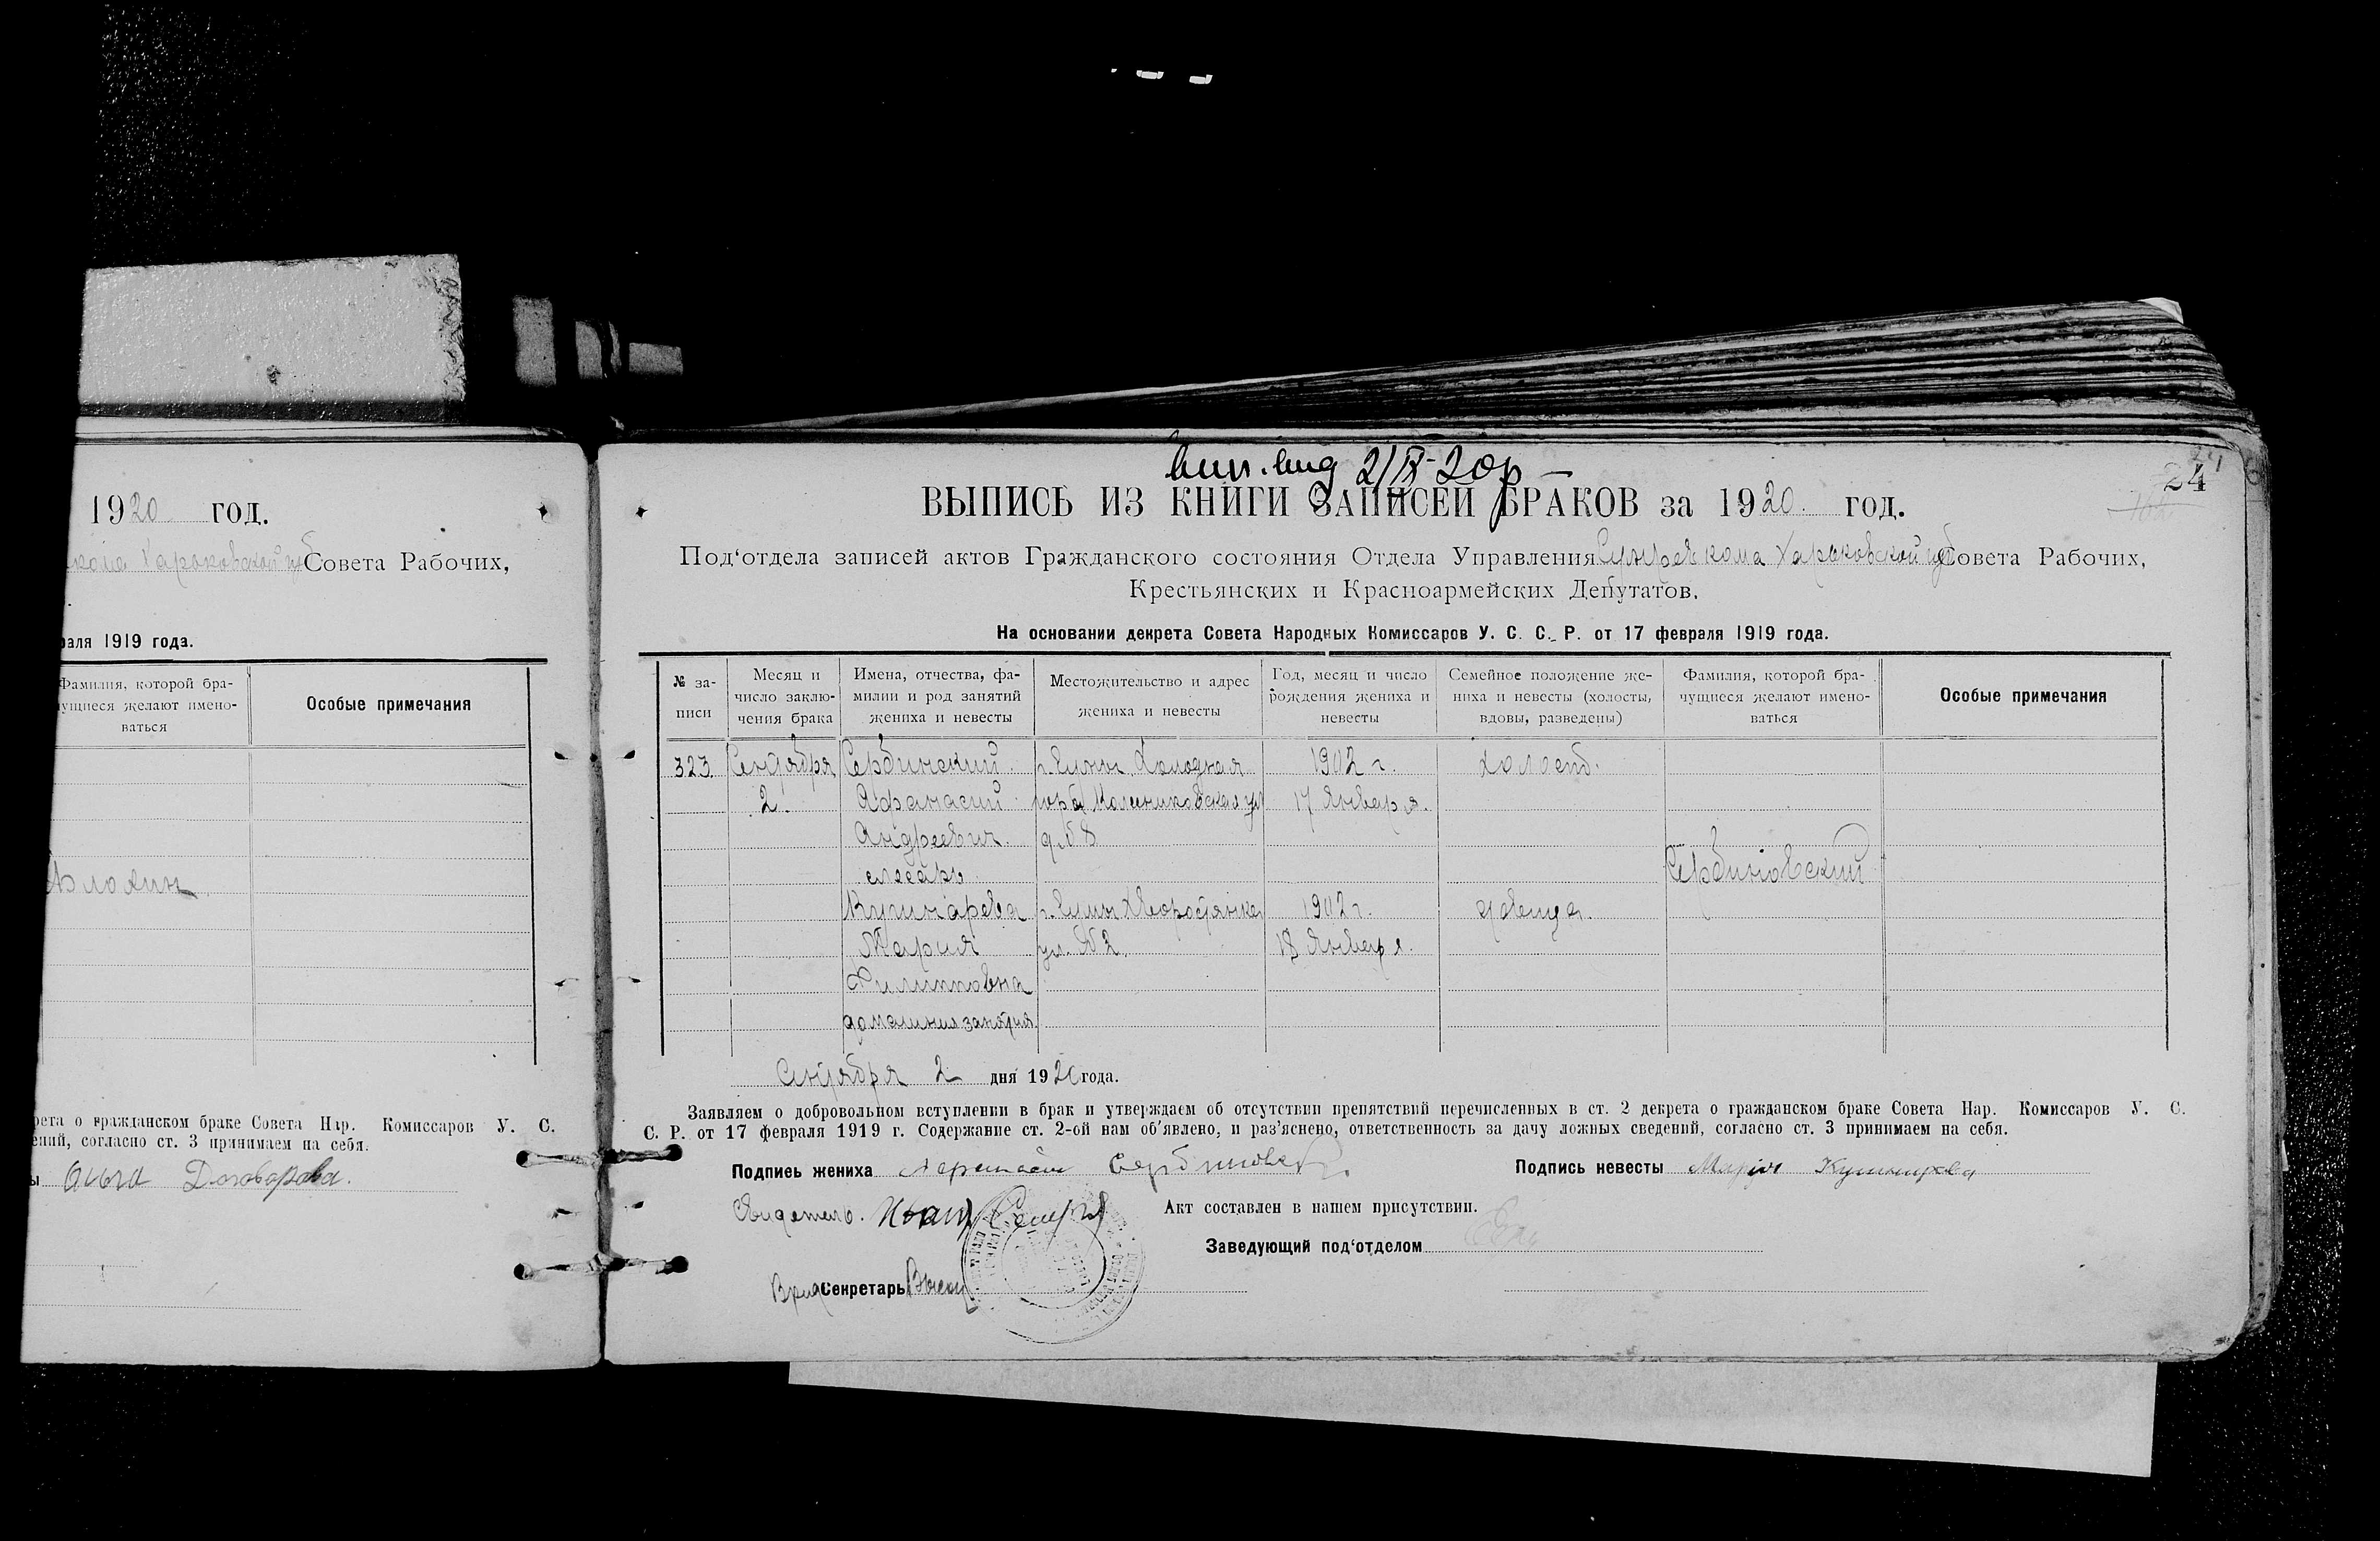 1920 год.
Харьковской губ Совета Рабочих,
раля 1919 года.
Фамилия, которой бра-
чущиеся желают имено-
ваться
Особые примечания
рета о гражданском браке Совета Нар. Комиссаров У. С.
ений, согласно ст. 3 принимаем на себя.
ы Ольга
24
2/IX-20р
ВЫПИСЬ ИЗ КНИГИ ЗАПИСЕЙ БРАКОВ за 1920 год.
Под‘отдела записей актов Гражданского состояния Отдела Управления Сумревкома Харьковской губ Совета Рабочих,
Крестьянских и Красноармейских Депутатов.
На основании декрета Совета Народных Комиссаров У. С. С. Р. от 17 февраля 1919 года.
№ за-
писи
Месяц и
число заклю-
чения брака
Имена, отчества, фа-
милии и род занятий
жениха и невесты
Местожительство и адрес
жениха и невесты
Год, месяц и число
рождения жениха и
невесты
Семейное положение же-
ниха и невесты (холосты,
вдовы, разведены)
Фамилия, которой бра-
чущиеся желают имено-
ваться
Особые примечания
323 Сентября Сербинский г. Сумы Холодная 1902 г. холост.
2. Афанасий гора 17 Января.
Андреевич. д. № 8
слесарь Сербиновский
Кушнарева г. Сумы 1902 г. девица.
Мария ул. № 2. 18 Января.
Филипповна
домашния занятия
Сентября 2 дня 1920 года.
Заявляем о добровольном вступлении в брак и утверждаем об отсутствии препятствий перечисленных в ст. 2 декрета о гражданском браке Совета Нар. Комиссаров У. С.
С. Р. от 17 февраля 1919 г. Содержание ст. 2-ой нам об‘явлено, и раз‘яснено, ответственность за дачу ложных сведений, согласно ст. 3 принимаем на себя.
Подпись жениха
Подпись невесты Мария
Свидетель. Иван
Акт составлен в нашем присутствии.
Заведующий под‘отделом
Врид Секретарь